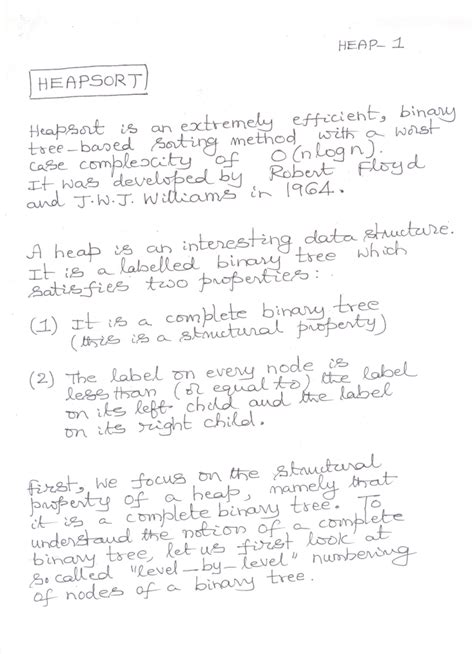 HEAP-1
HEAPSORT
Heapsort is an extremely efficient, binary
tree-based sorting method with a worst
case complexity of O(n log n).
It was developed by Robert Floyd
and J.W.J. Williams in 1964.
A heap is an interesting data structure.
It is a labelled binary tree which
satisfies two properties:
(1) It is a complete binary tree
(this is a structural property)
(2) The label on every node is
less than (or equal to) the label
on its left child and the label
on its right child.
First, we focus on the structural
property of a heap, namely that
it is a complete binary tree. To
understand the notion of a complete
binary tree, let us first look at
so called "level-by-level" numbering
of nodes of a binary tree.